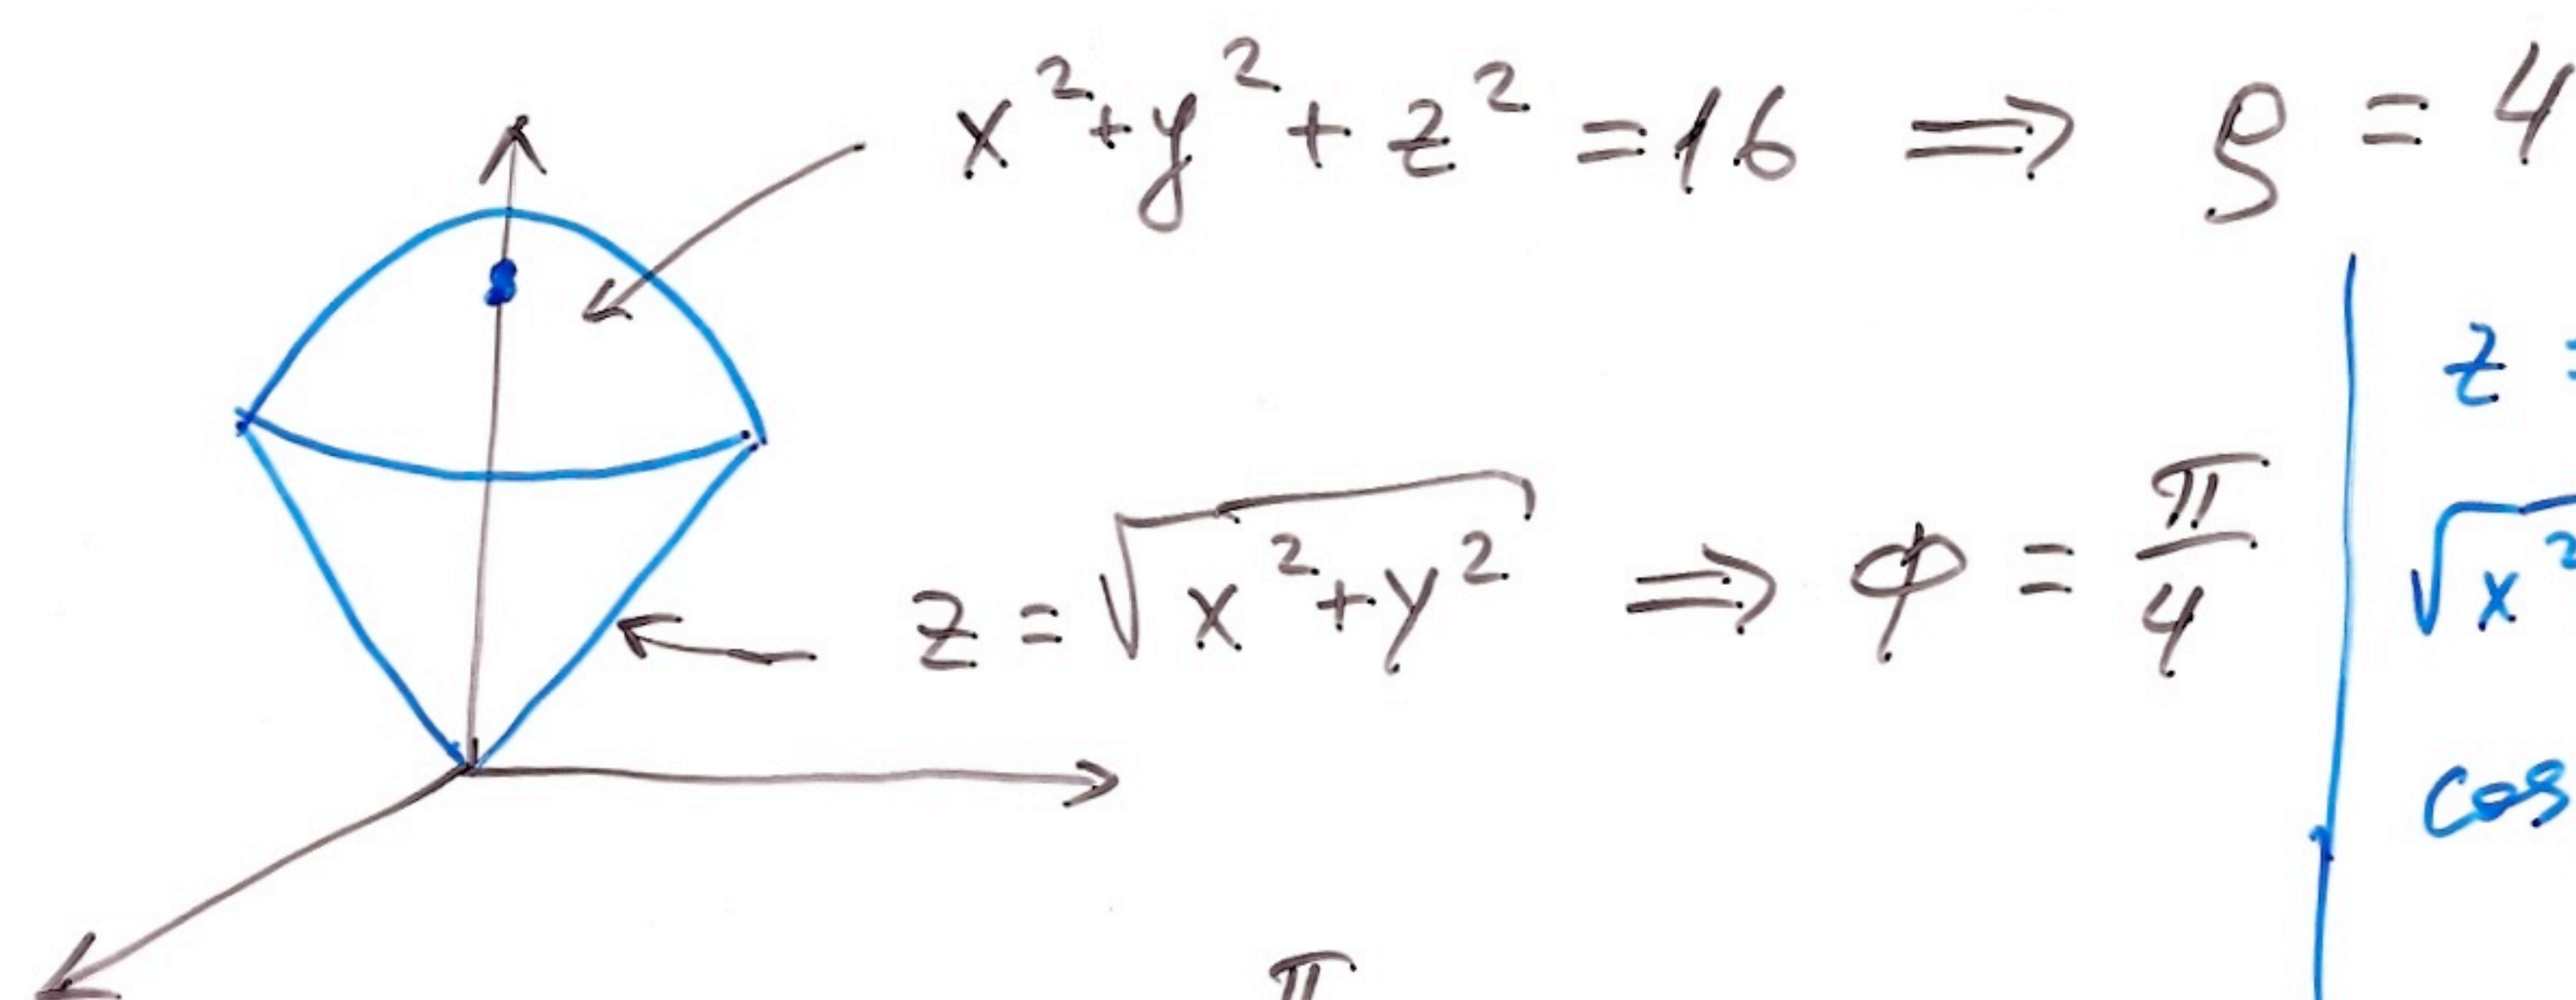 x²+y²+z² = 16 ⟹ ρ = 4
z =
z = √(x²+y²) ⟹ φ = π/4
√x²
cos
π